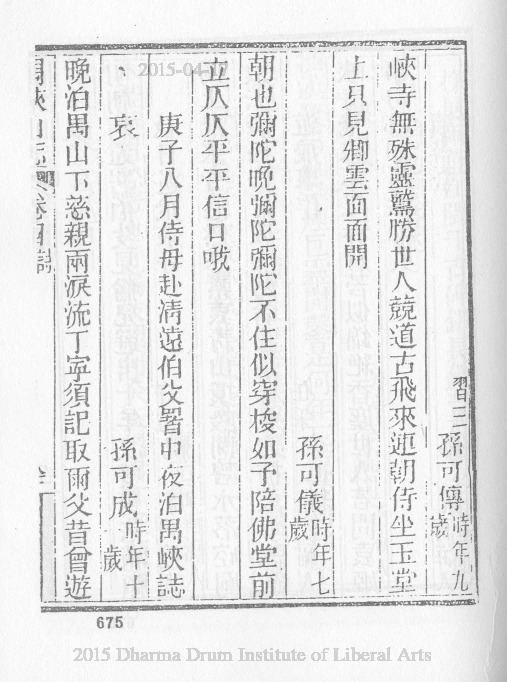 習三孫可傳時年九歲
峽寺無殊靈鷲勝世人競道古飛來連朝侍坐玉堂
上只見卿雲面面開
孫可儀時年七歲
朝也彌陀晩彌陀彌陀不住似穿梭如予陪佛堂前
立仄仄平平信口哦
庚子八月侍母赴清遠伯父署中夜泊禺峽誌
哀
孫可成時年十歲
晚泊禺山下慈親兩淚流丁寧須記取爾父昔曾遊
禺峽山志
卷四詩
675
2015 Dharma Drum Institute of Liberal Arts